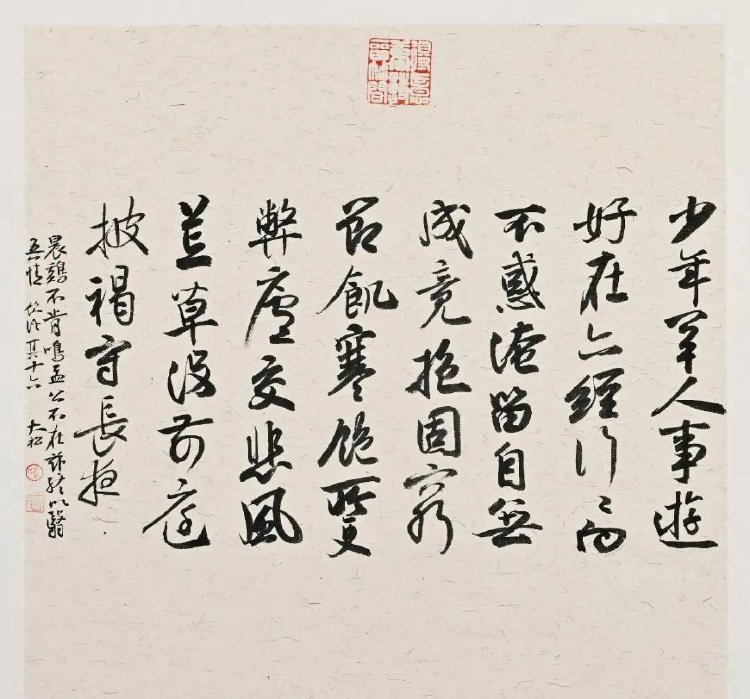 少年罕人事遊
好在六經行〻向
不惑淹留自無
成竟抱固窮
節飢寒飽所更
弊廬交悲風
荒草沒前庭
披褐守長夜
晨鷄不肯鳴孟公不在茲終以翳
吾情 飲酒其十六